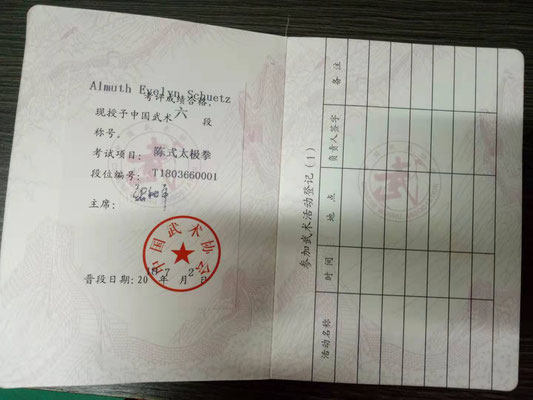 Almuth Evelyn Schuetz
考评成绩合格,
现授予中国武术六段
称号。
考试项目: 陈式太极拳
段位编号: T1803660001
主席:
中国武术协会
晋段日期: 20 年 月 2 日
参加武术活动登记(1)
活动名称 时间 地点 负责人签字 备注